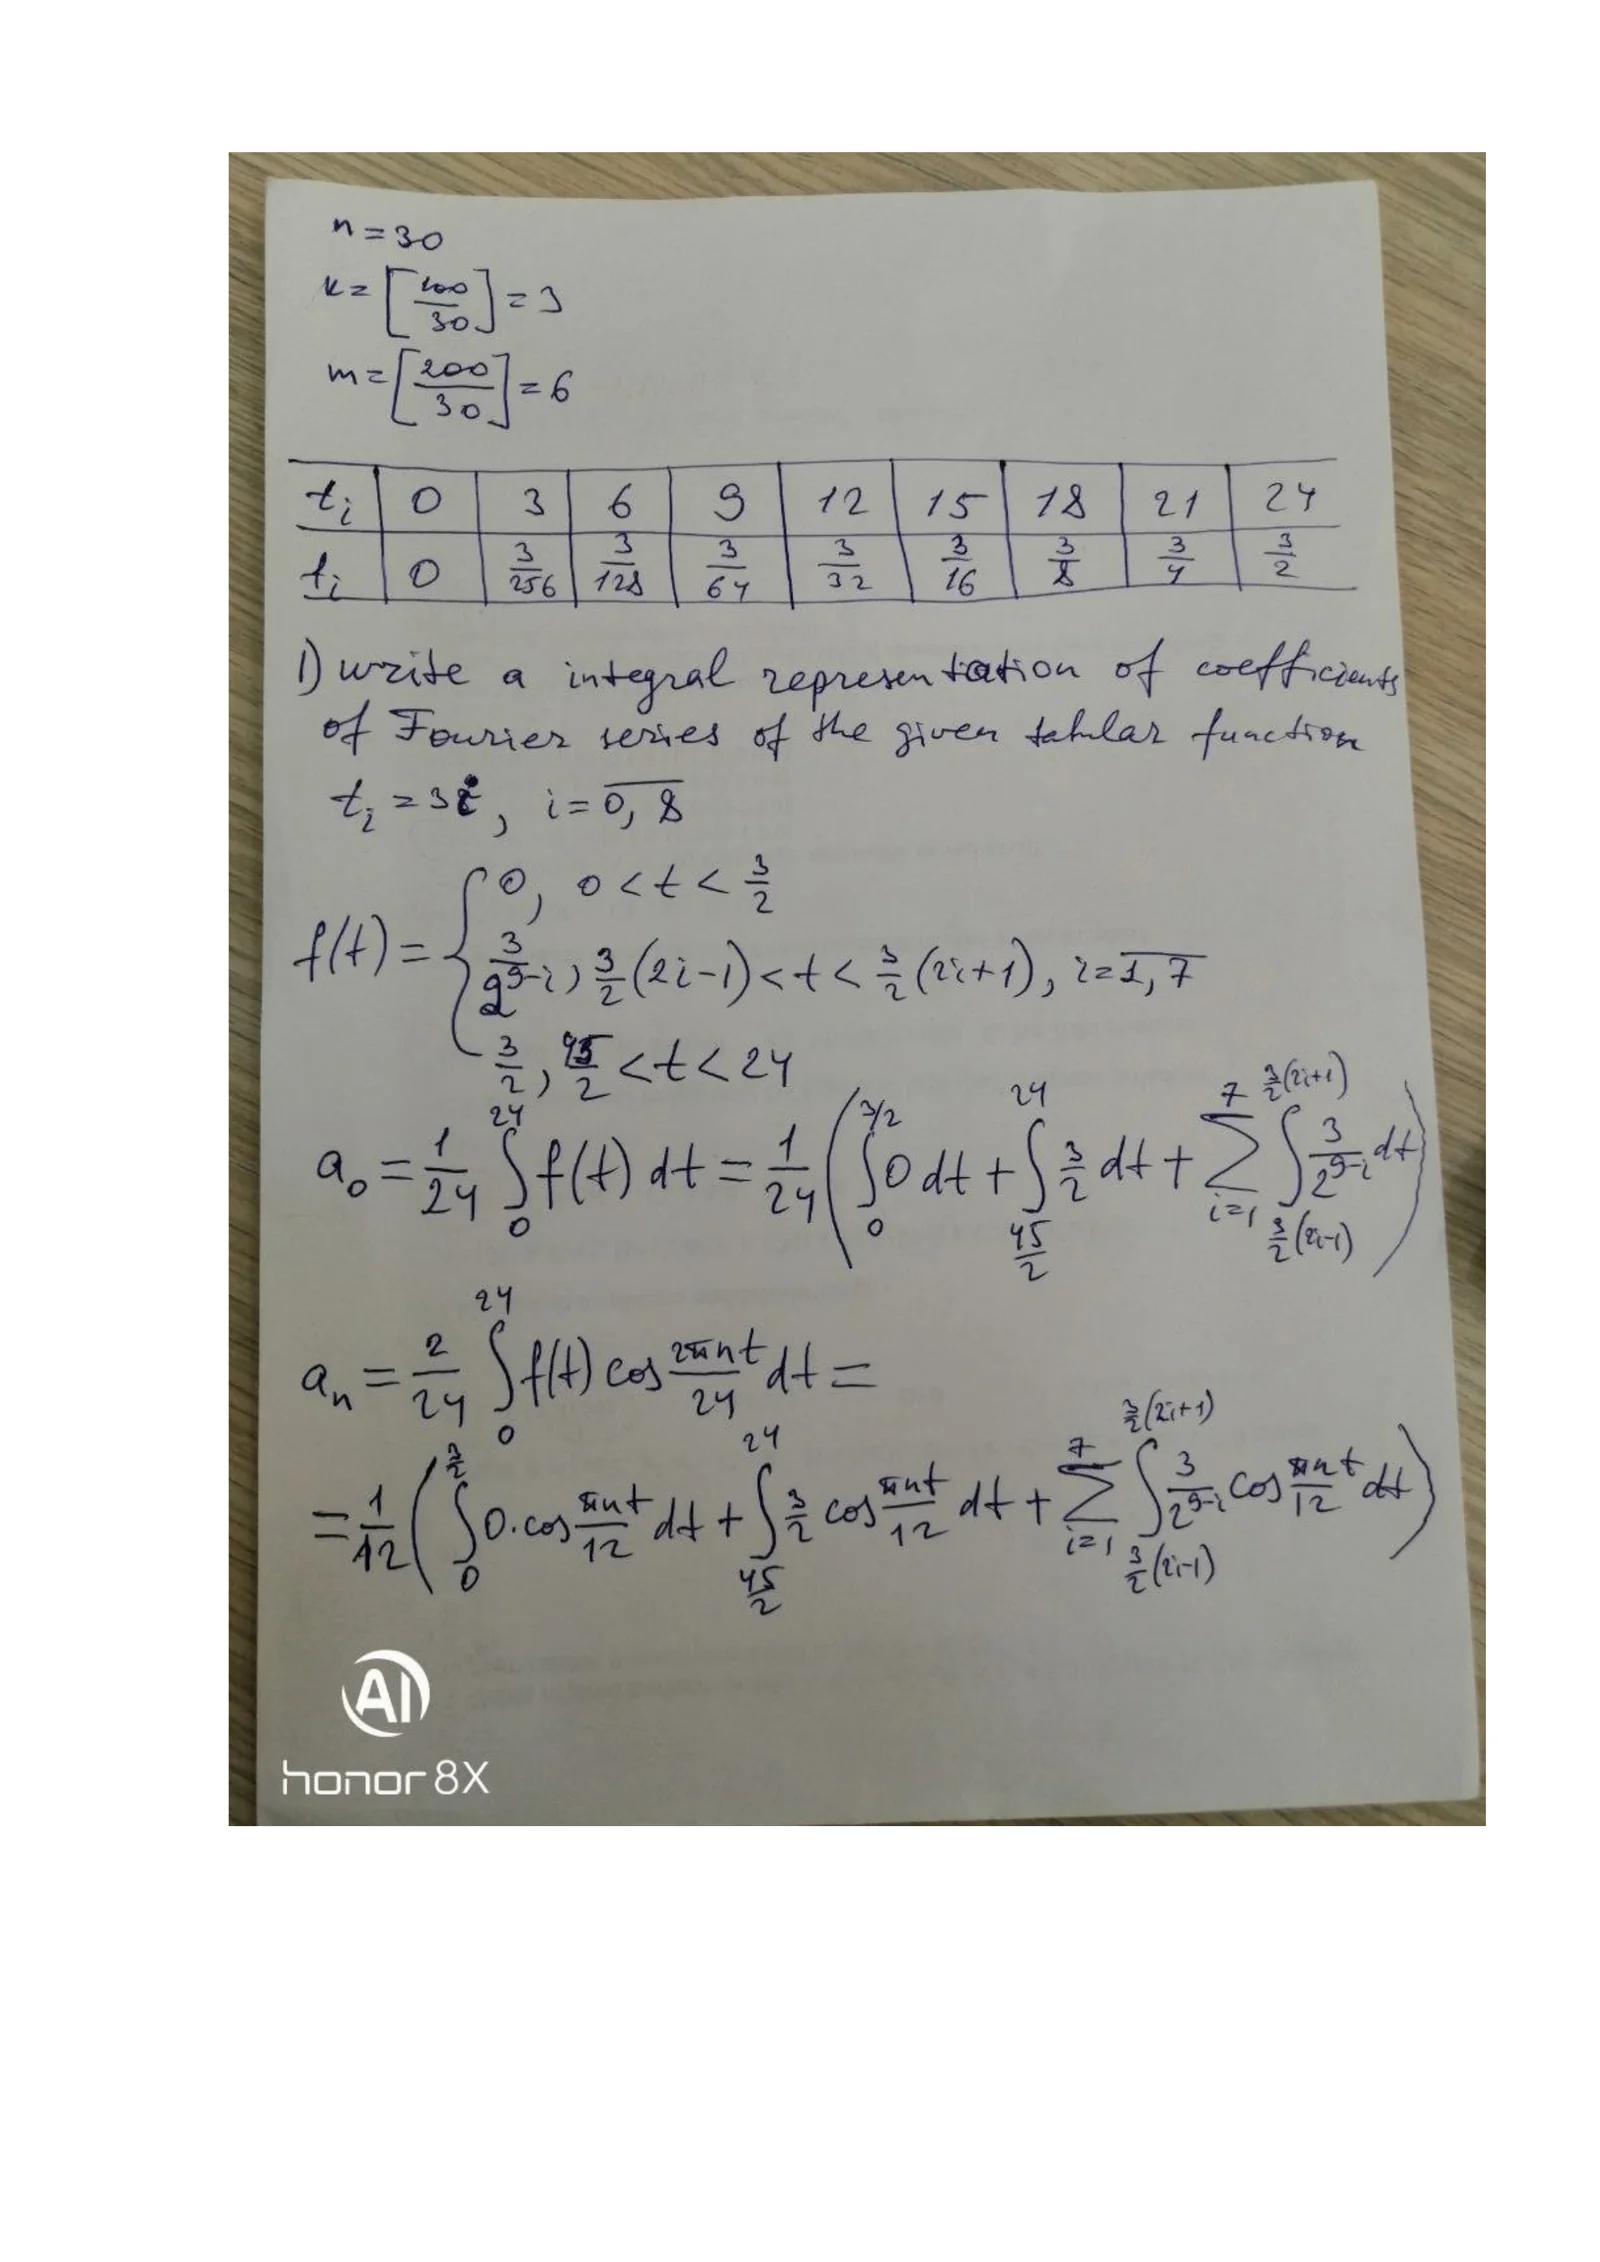 n = 30
k = [100/30] = 3
m = [200/30] = 6
t_i | 0 | 3 | 6 | 9 | 12 | 15 | 18 | 21 | 24
f_i | 0 | 3/256 | 3/128 | 3/64 | 3/32 | 3/16 | 3/8 | 3/4 | 3/2
1) write a integral representation of coefficients
of Fourier series of the given tabular function
t_i = 3i, i = \overline{0, 8}
f(t) = { 0, 0 < t < 3/2
3/2^{9-i}, 3/2(2i-1) < t < 3/2(2i+1), i = \overline{1, 7}
3/2, 45/2 < t < 24
a_0 = 1/24 ∫_0^{24} f(t) dt = 1/24 ( ∫_0^{3/2} 0 dt + ∫_{45/2}^{24} 3/2 dt + ∑_{i=1}^{7} ∫_{3/2(2i-1)}^{3/2(2i+1)} 3/2^{9-i} dt )
a_n = 2/24 ∫_0^{24} f(t) cos 2πnt/24 dt =
= 1/12 ( ∫_0^{3/2} 0·cos πnt/12 dt + ∫_{45/2}^{24} 3/2 cos πnt/12 dt + ∑_{i=1}^{7} ∫_{3/2(2i-1)}^{3/2(2i+1)} 3/2^{9-i} cos πnt/12 dt )
AI
honor 8X